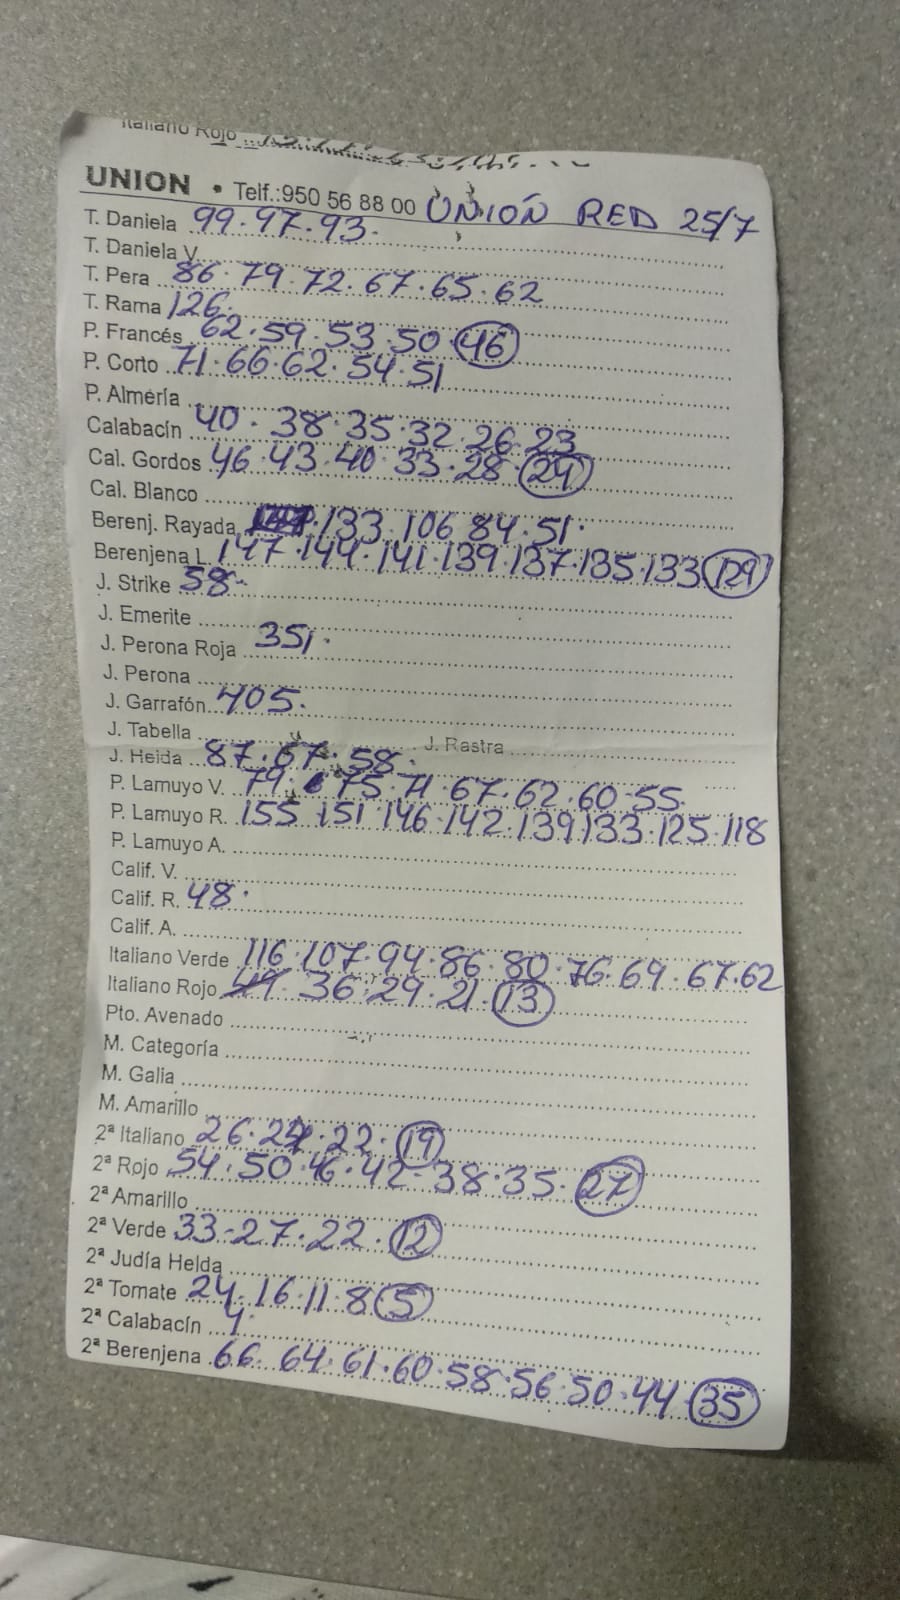 Italiano Rojo
UNION • Telf.:950 56 88 00 UNIÓN RED 25/7
T. Daniela 99.97.93.
T. Daniela V.
T. Pera 86.79.72.67.65.62
T. Rama 126.
P. Francés 62.59.53.50.46
P. Corto 71.66.62.54.51
P. Almería
Calabacín 40.38.35.32.26.23
Cal. Gordos 46.43.40.33.28.24
Cal. Blanco
Berenj. Rayada 133.106.84.51.
Berenjena L. 147.144.141.139.137.135.133.129
J. Strike 58-
J. Emerite
J. Perona Roja 351.
J. Perona
J. Garrafón 405.
J. Tabella J. Rastra
J. Helda 87.67.58.
P. Lamuyo V. 79.75.71.67.62.60-55
P. Lamuyo R. 155.151.146.142.139.133.125.118
P. Lamuyo A.
Calif. V.
Calif. R. 48.
Calif. A.
Italiano Verde 116.107.94.86.80.76.69.67.62
Italiano Rojo 36.29.21.13
Pto. Avenado
M. Categoría
M. Galia
M. Amarillo
2ª Italiano 26.24.22.19
2ª Rojo 54.50.46.42-38.35.27
2ª Amarillo
2ª Verde 33-27.22.12
2ª Judía Helda
2ª Tomate 24.16.11.8 5
2ª Calabacín 4.
2ª Berenjena 66.64.61.60.58.56.50.44 35